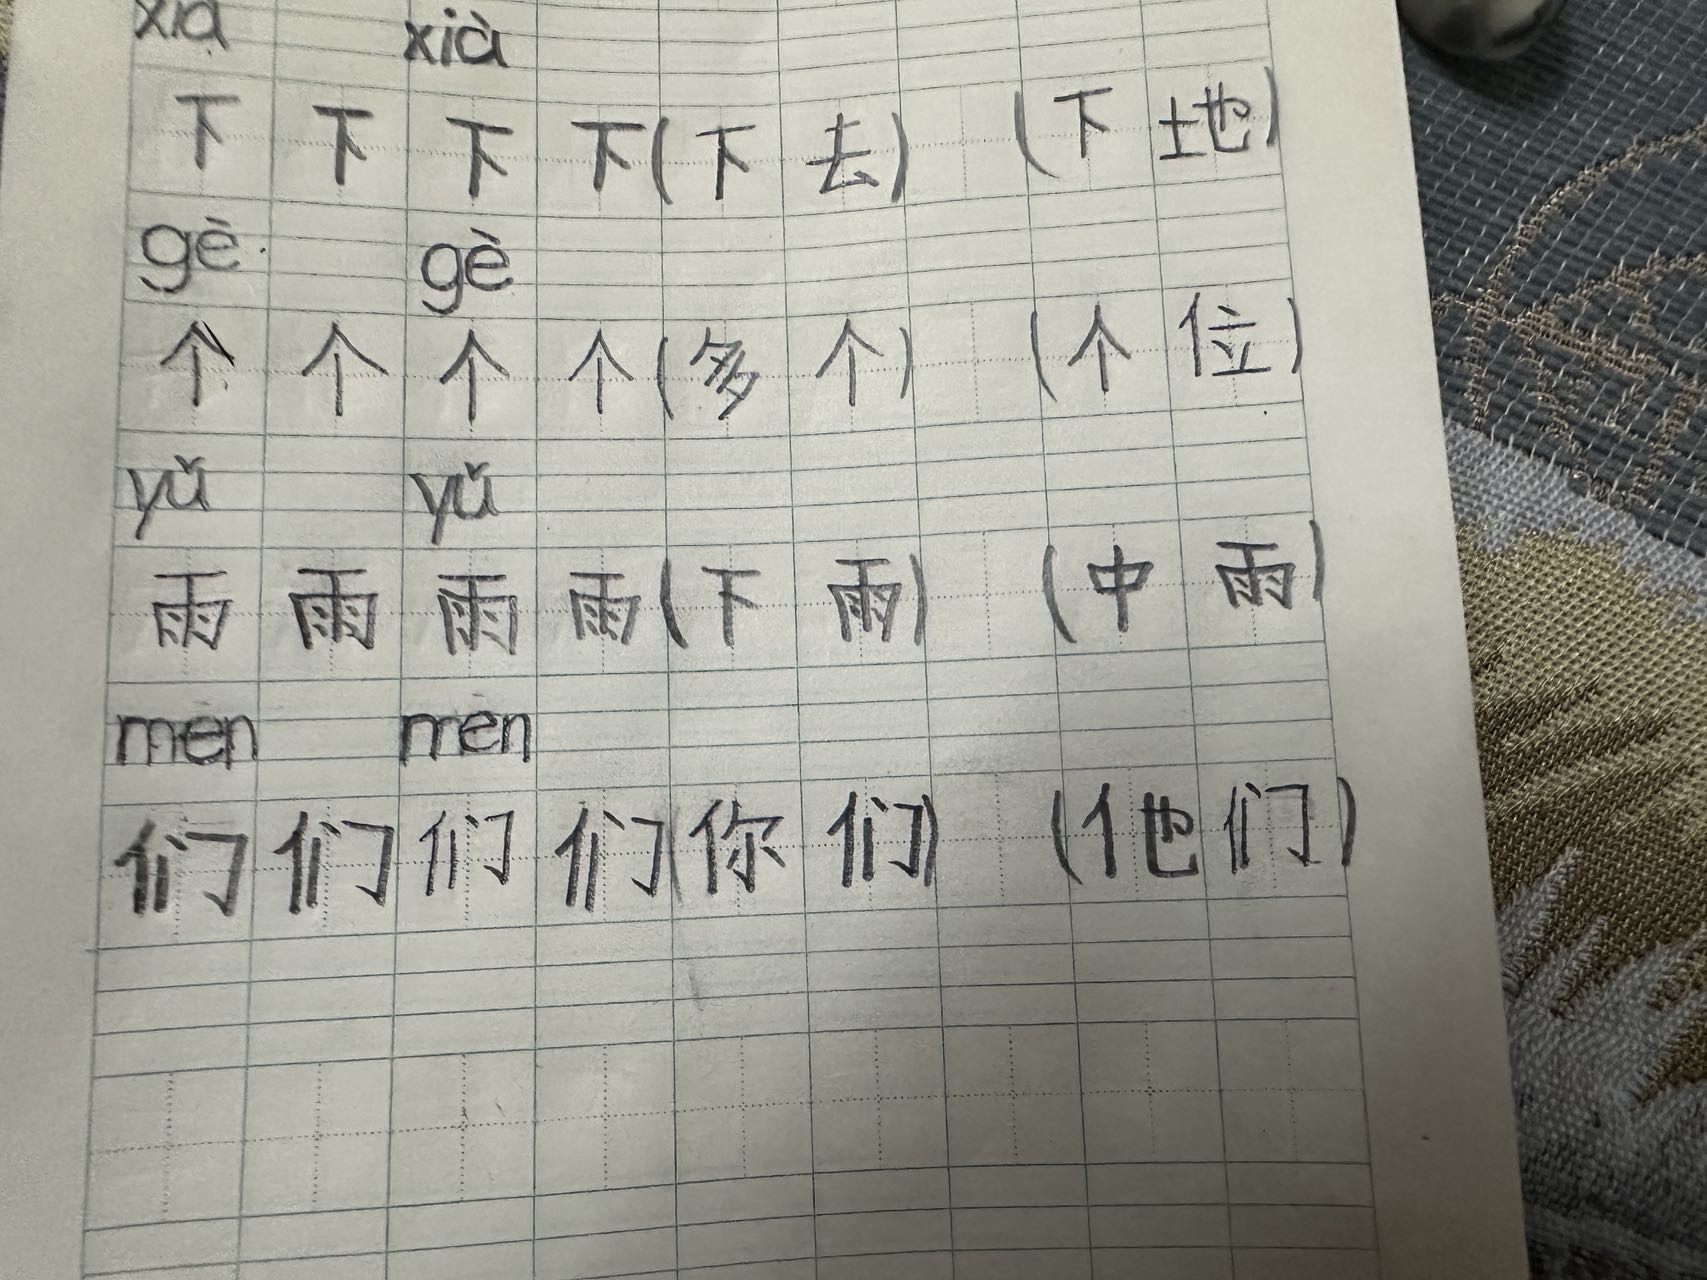 xià xià
下 下 下 下 (下 去) (下 地)
gè gè
个 个 个 个 (多 个) (个 位)
yǔ yǔ
雨 雨 雨 雨 (下 雨) (中 雨)
men mèn
们 们 们 们 (你 们) (他 们)